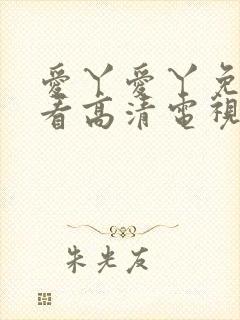 愛丫愛丫免
看高清電視
朱光友